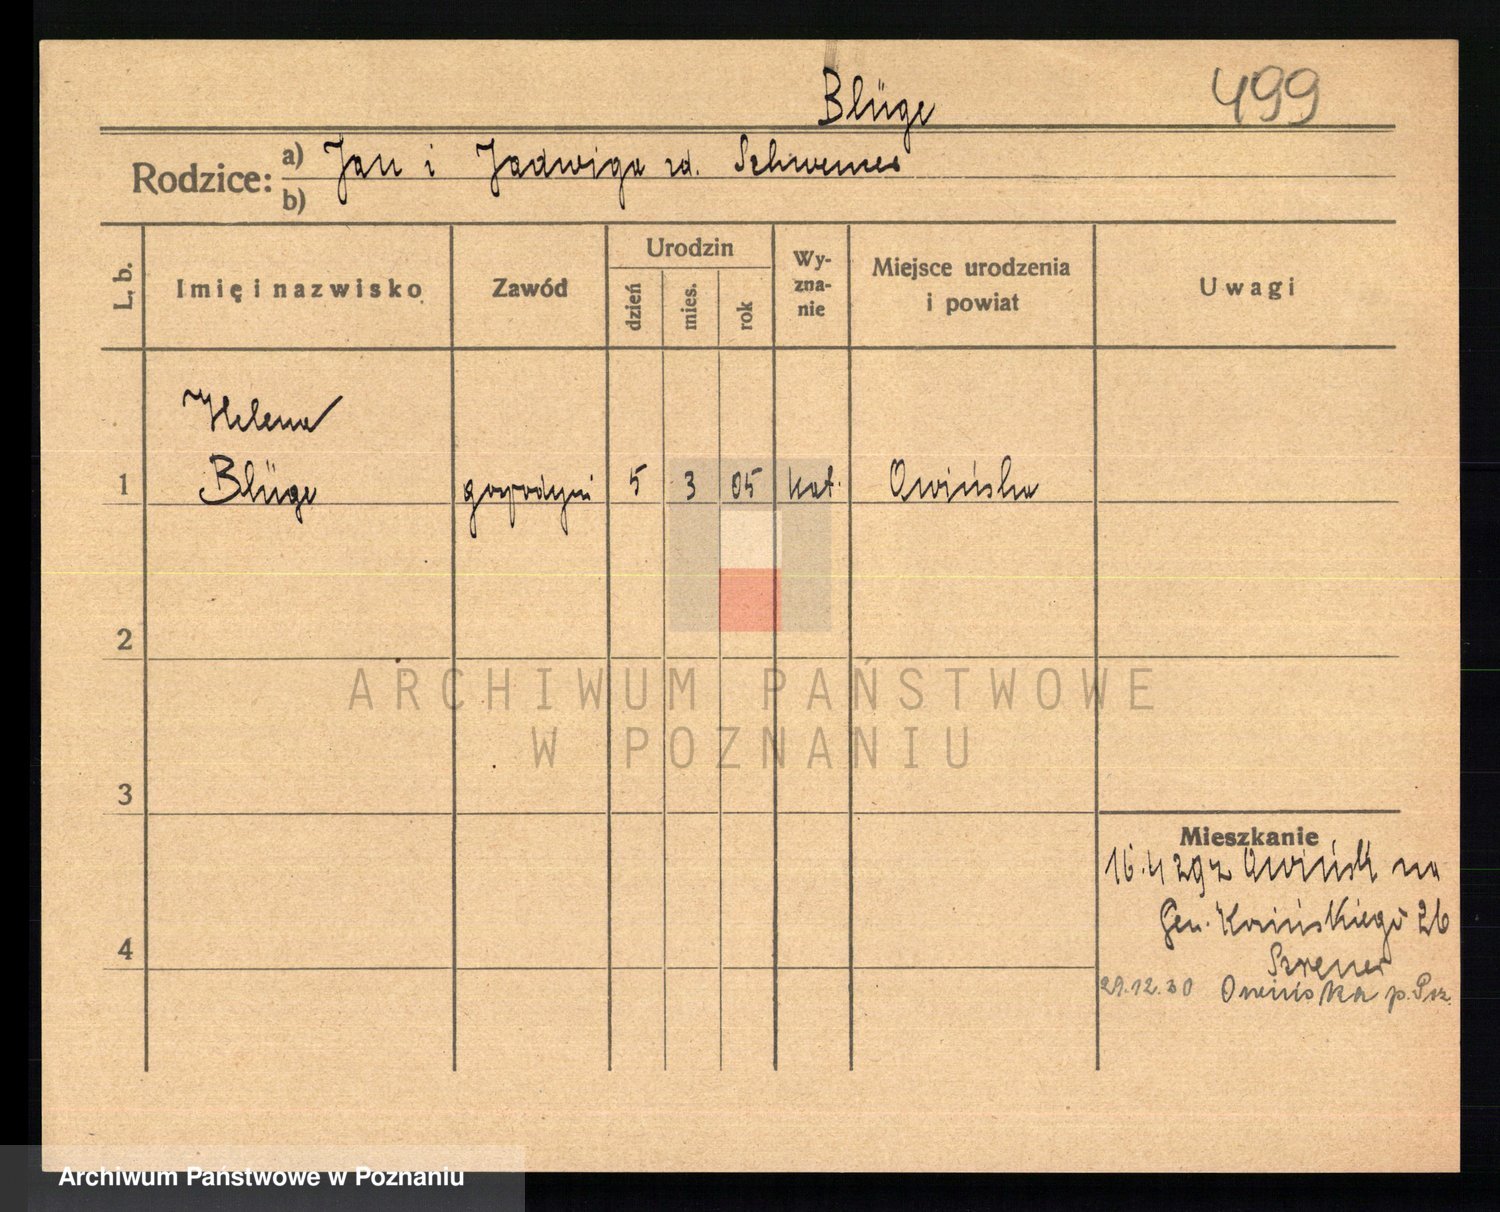 Blüge
499
Rodzice:
a) Jan i Jadwiga zd. Schwemer
b)
L. b.
Imię i nazwisko
Zawód
Urodzin
dzień
mies.
rok
Wy-
zna-
nie
Miejsce urodzenia
i powiat
Uwagi
Helena
1 Blüge gospodyni 5 3 05 kat. Owińska
2
3
4
Mieszkanie
16.4 29 z Owińsk na
Gen. Kosińskiego 26
29.12.30 Owińska p. Poz.
ARCHIWUM PAŃSTWOWE
W POZNANIU
Archiwum Państwowe w Poznaniu